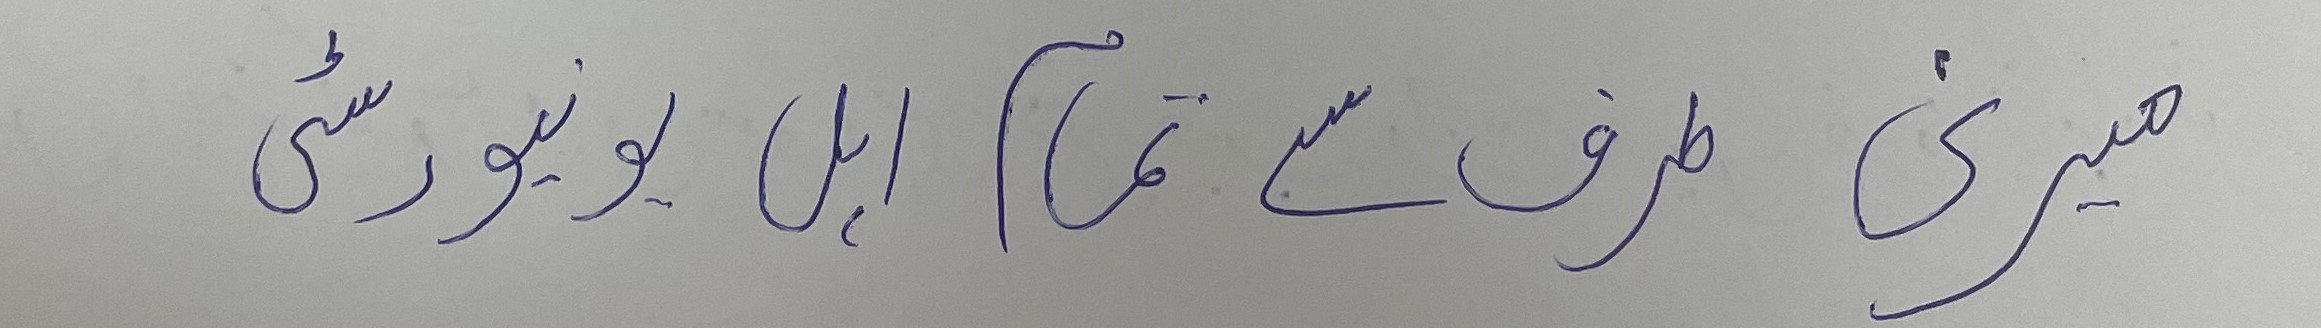 میری طرف سے تمام اہل یونیورسٹی